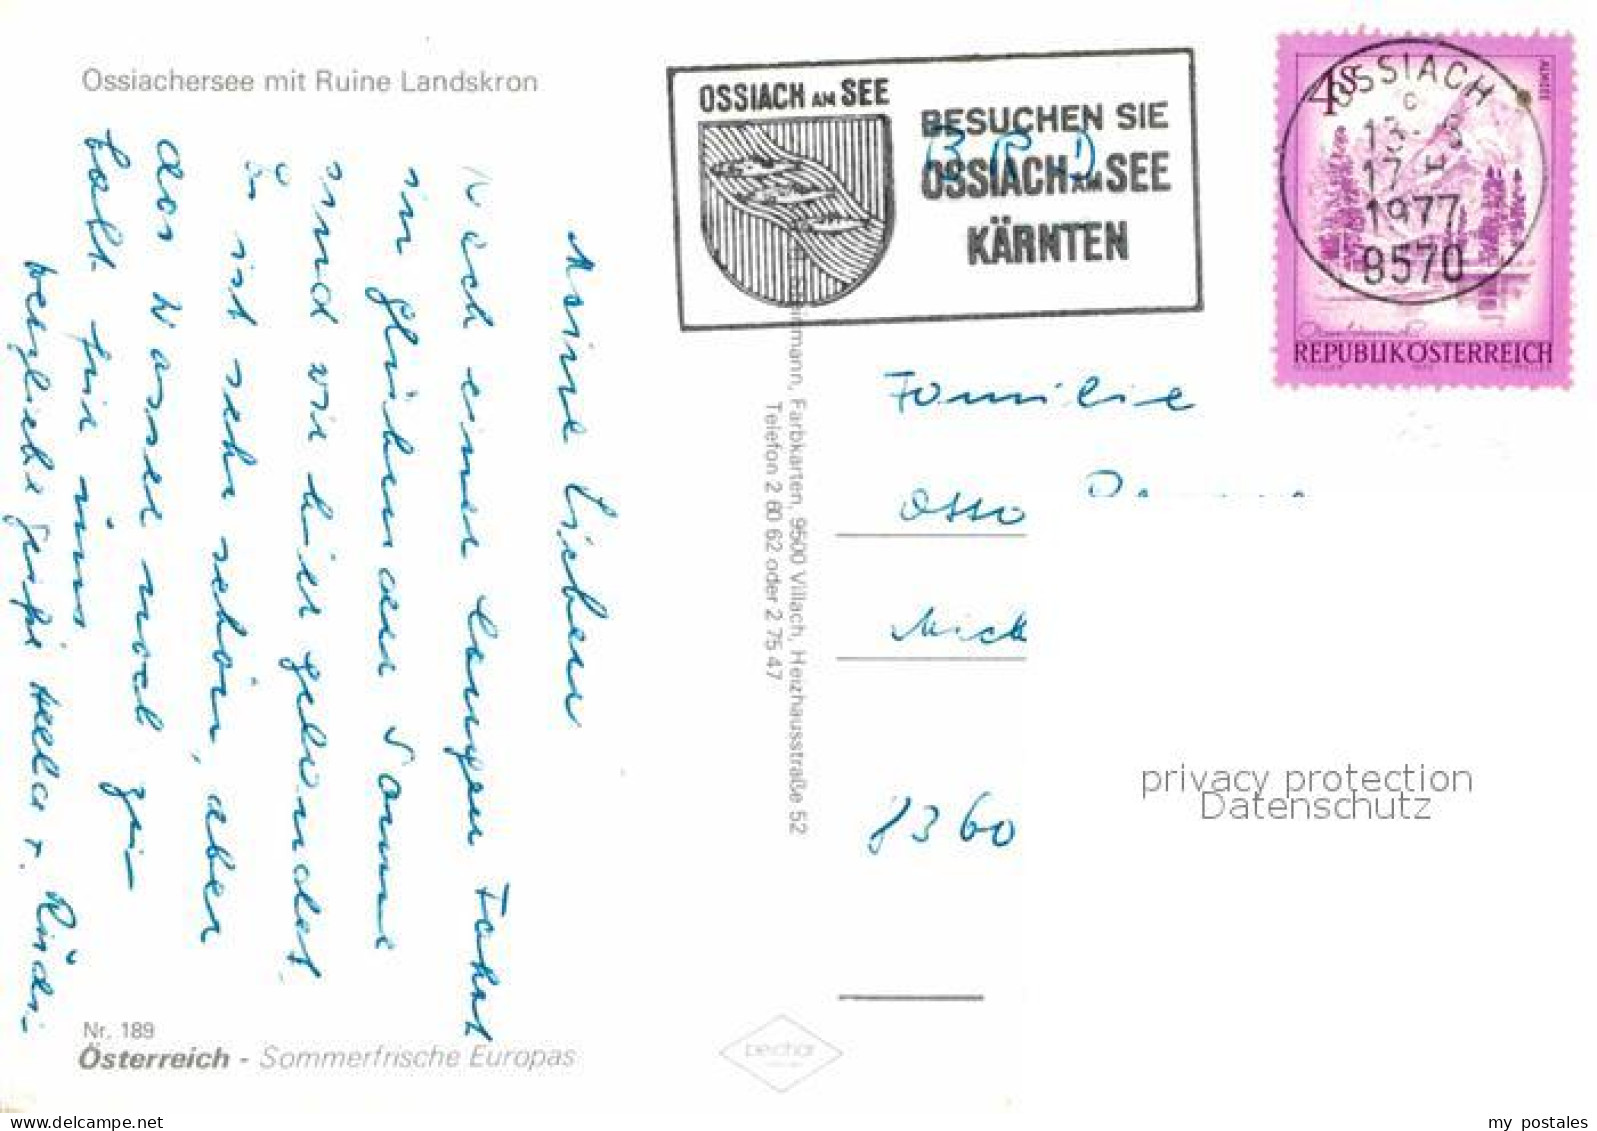 Ossiachersee mit Ruine Landskron
Meine Lieben
Nach einer langen Fahrt
in glühender Sonne
sind wir hier gelandet.
Es ist sehr schön, aber
das Wasser noch zu
kalt für uns
herzliche Grüße Hella u. Rüdi-
Nr. 189
Österreich - Sommerfrische Europas
Farbkarten, 9500 Villach, Heizhausstraße 52
Telefon 2 60 62 oder 2 75 47
peichar
OSSIACH AM SEE
BESUCHEN SIE
OSSIACH AM SEE
KÄRNTEN
BRD
4S
ALMSEE
OSSIACH
c
13.-6
17
1977
9570
REPUBLIK ÖSTERREICH
Familie
Otto
Mich
8360
privacy protection
Datenschutz
my postales
www.delcampe.net